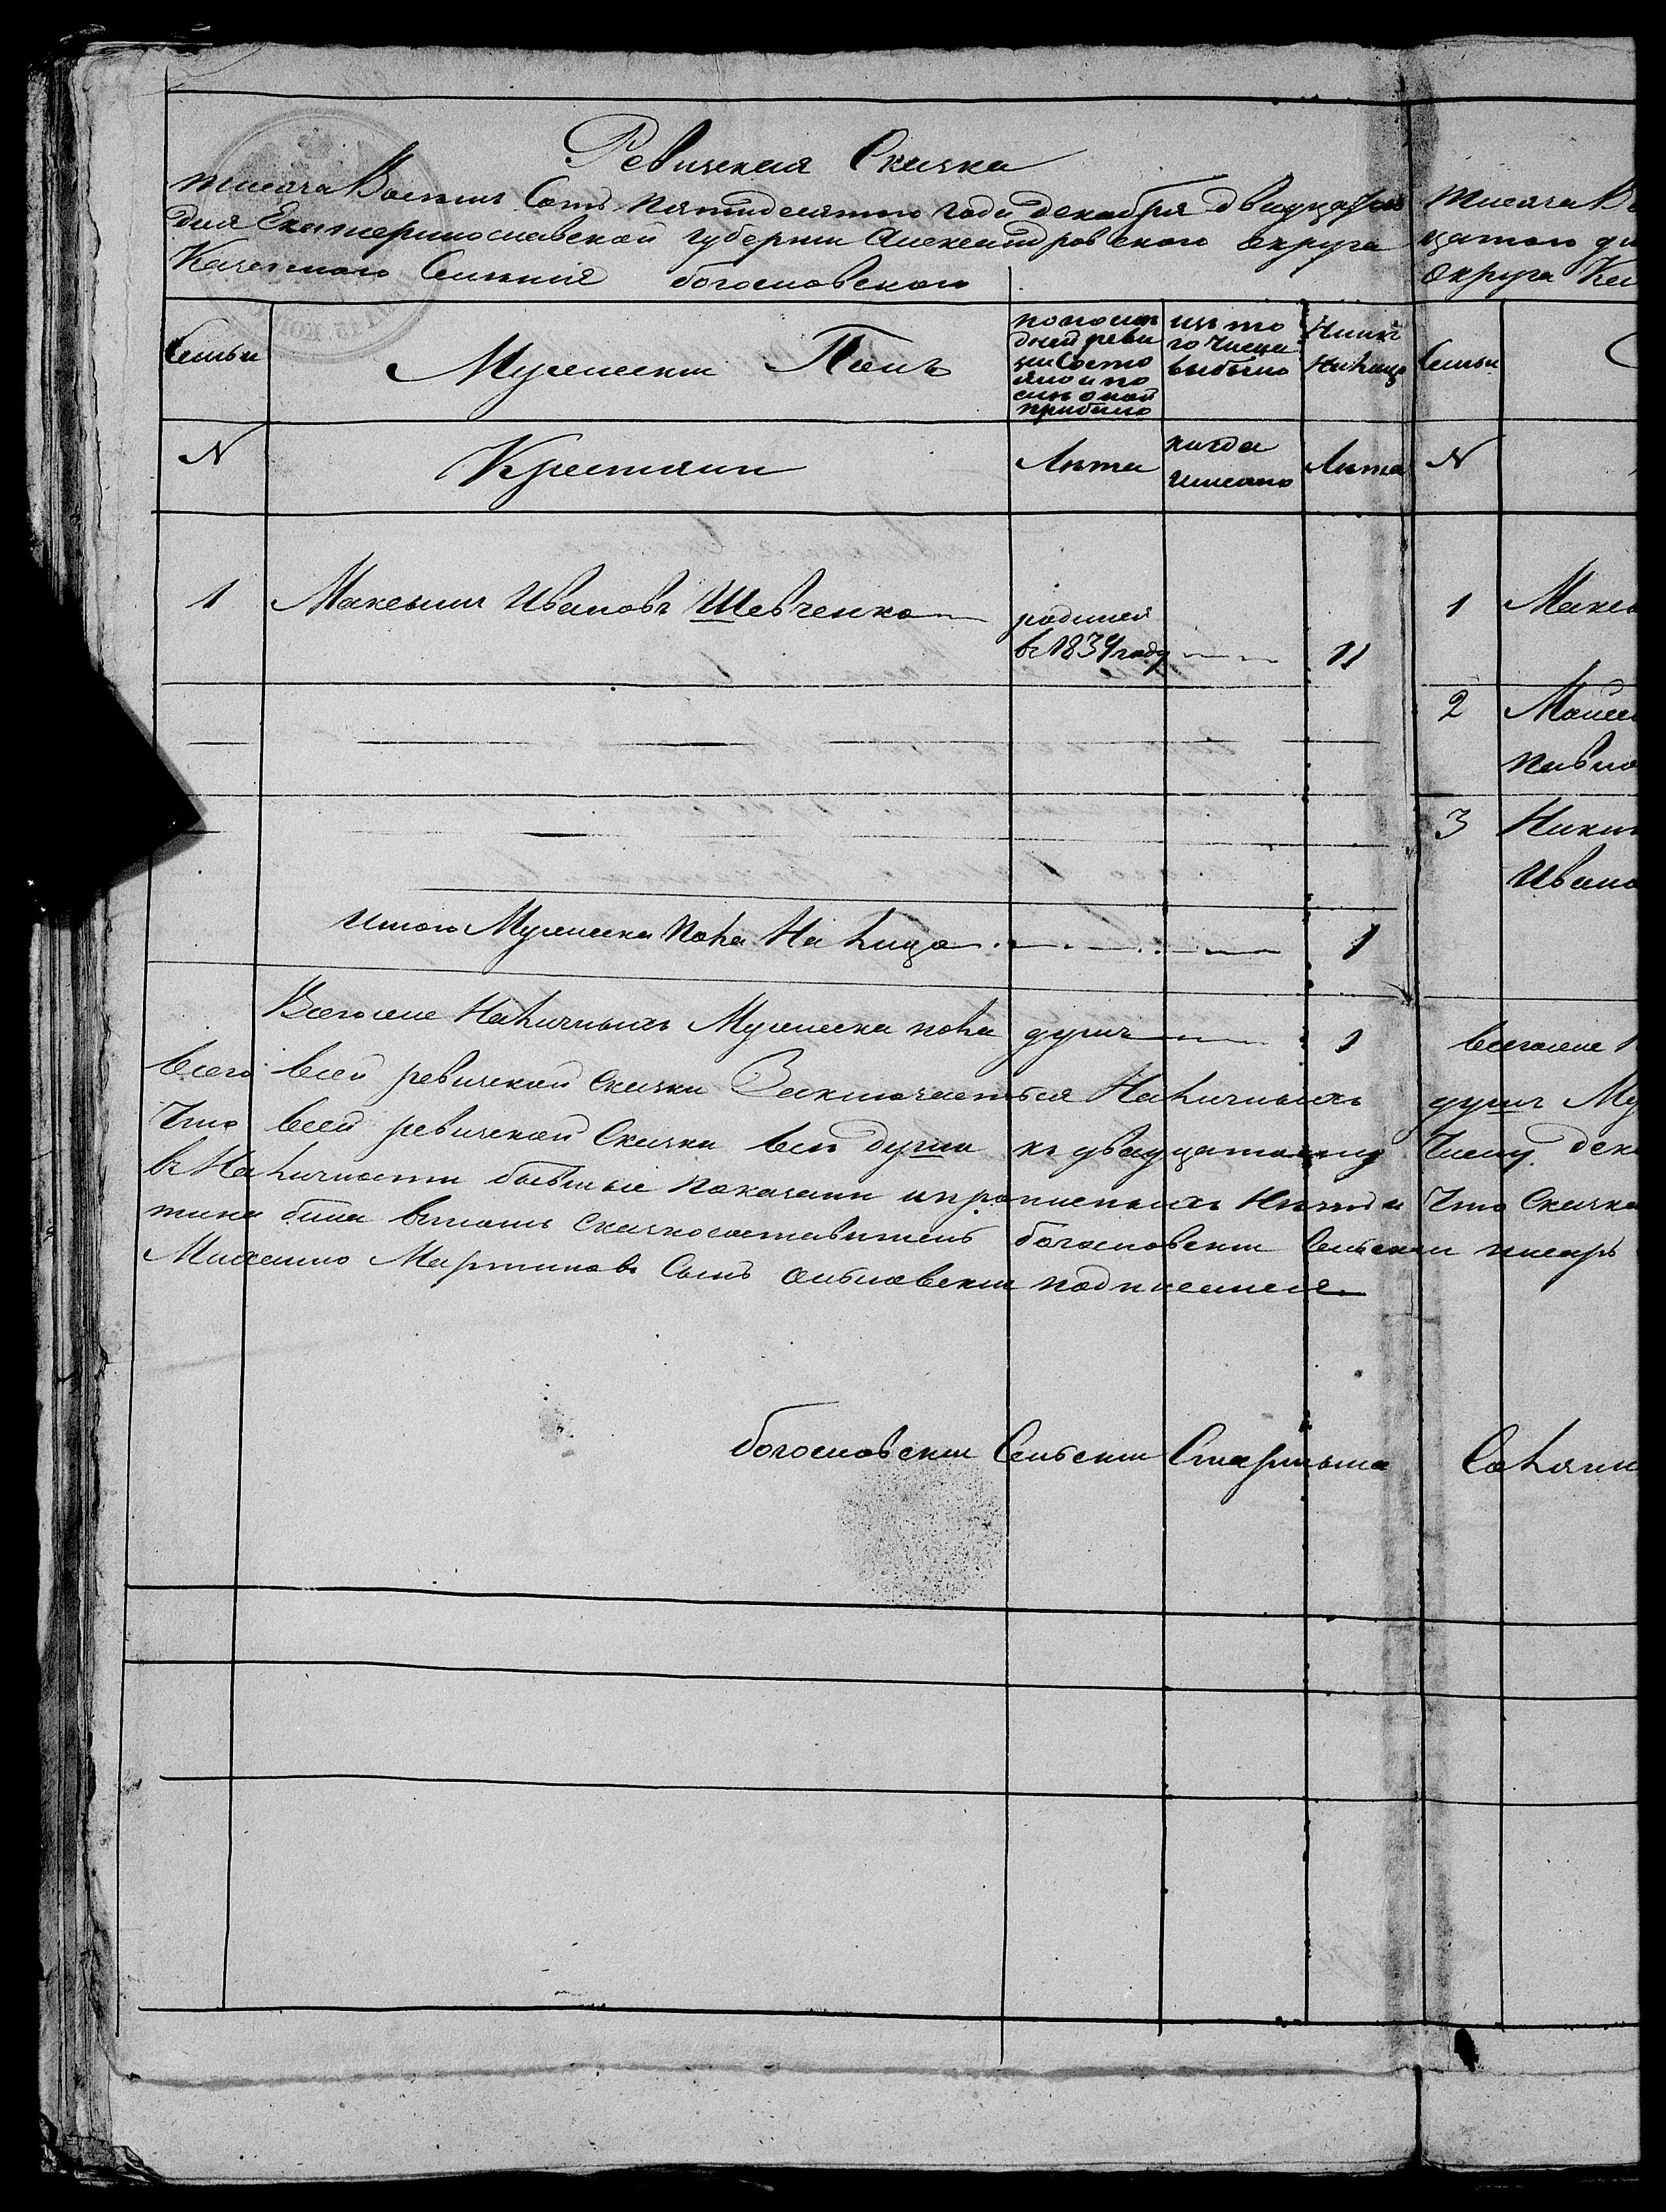 Ревизская Сказка
тисяча Восемь Сотъ пятидесятого года декабря двадцатого
дня Екатеринославской губернии Александровского округа
Казенного Селения богословского
Семьи
Мужески Полъ
по послѣ
дней реви
зіи Состо
яло и по
слѣ оной
прибыло
изъ то
го числа
выбыло
Нинѣ
На лицо
N
Крестяни
Лѣта
когда
имено
Лѣта
1 Максымъ Ивановъ Шевченко родился
въ 1839 году 11
Итого Мужеска пола На лицо 1
Всего же Наличныхъ Мужеска пола душъ 1
Всего всей ревизской Сказки Заключается Наличныхъ
что всей ревизской Сказки всѣ души къ двадцатому
въ Наличности бывшые показани и прописныхъ Нѣтъ а
тина была Сказкосоставитель богословски Сельски писарь
Мартинов Сынъ подписался
богословски Сельски Старшына
тисяча В
цатого д
округа Ка
Семьи
N
1 Макс
2
павло
3
Ивано
Всего же
душъ Му
числу дек
что Сказка